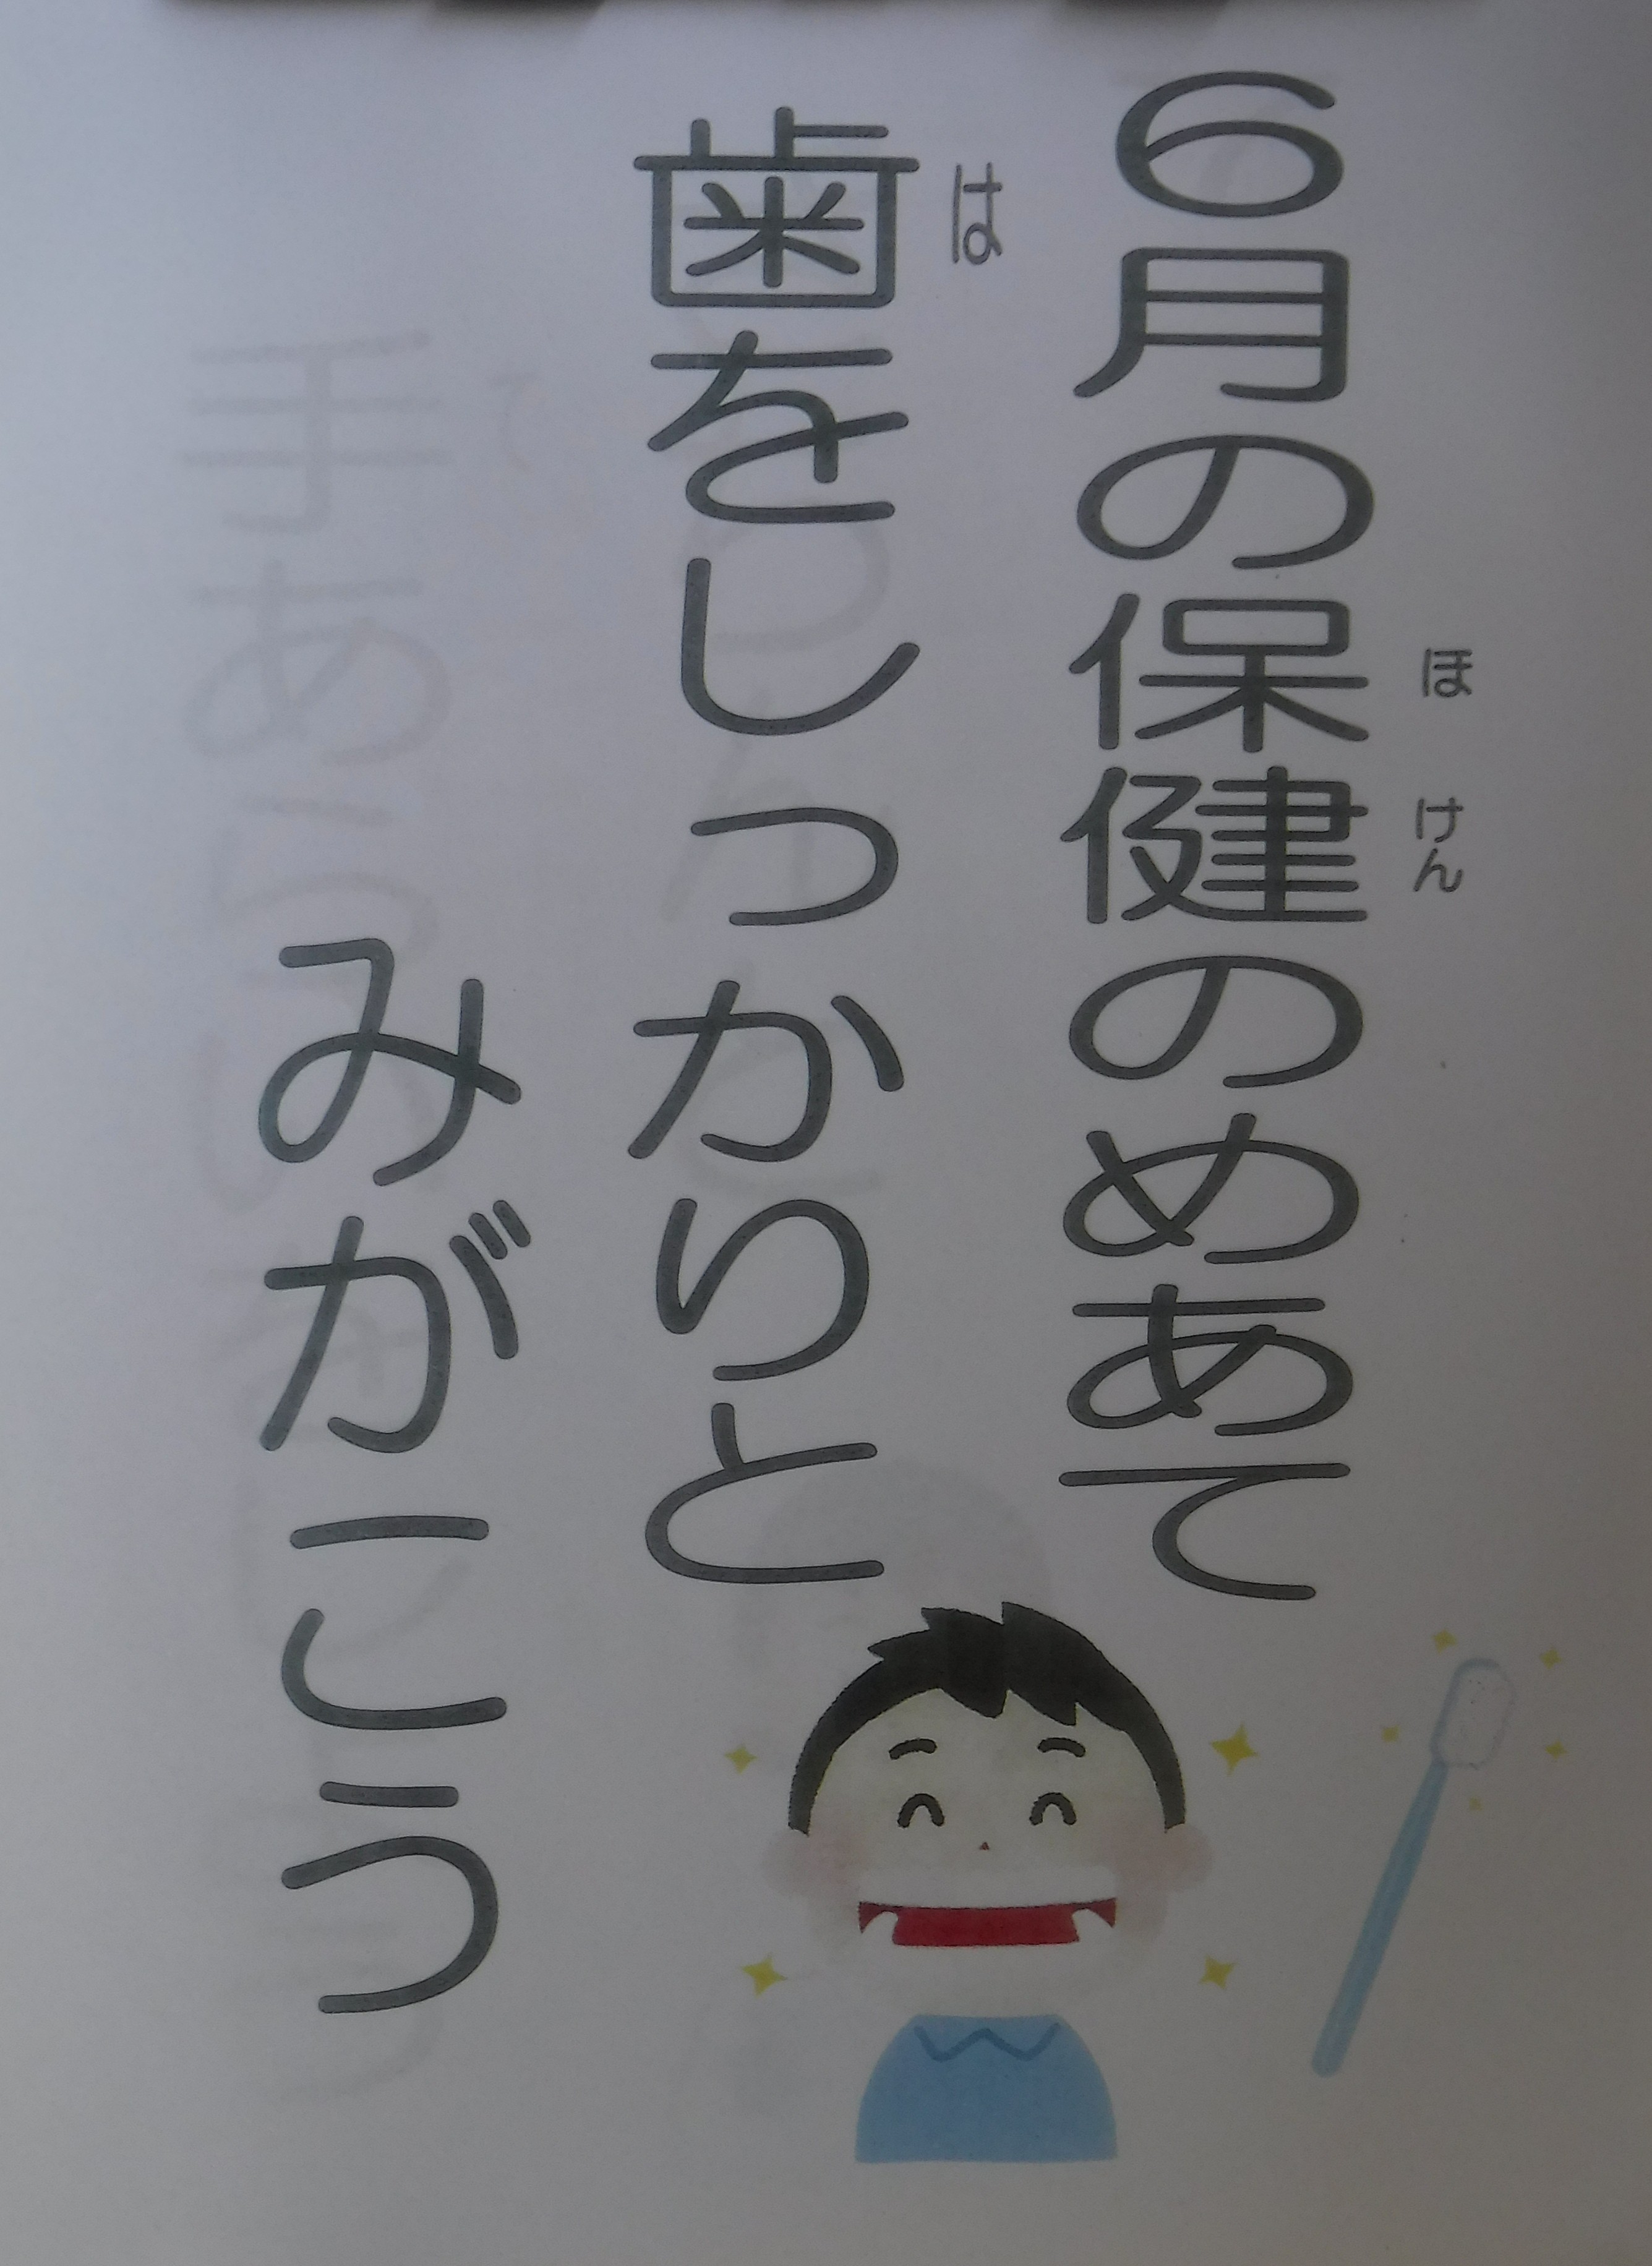 6月の保健のめあて
ほけん
歯をしっかりと
は
みがこう